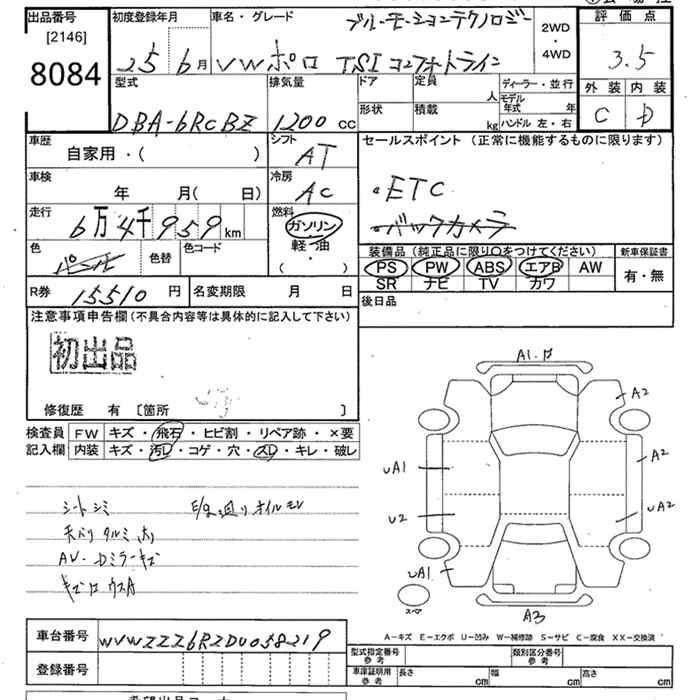 出品番号 初度登録年月 車名・グレード ブルーモーションテクノロジー 2WD・4WD 評価点
[2146]
8084 25 6月 VWポロ TSI コンフォートライン 3.5
型式 排気量 ドア 定員 人 ディーラー・並行 外装 内装
形状 積載 kg モデル年式 年
DBA-6RCBZ 1200 cc ハンドル 左・右 C D
車歴 自家用・( ) シフト AT セールスポイント (正常に機能するものに限ります)
車検 年 月( 日) 冷房 AC ・ETC
走行 6万4千959km 燃料 ガソリン・軽・油・( ) ・バックカメラ
色 色替 色コード 装備品 (純正品に限り○をつけてください) 新車保証書
PS PW ABS エアB AW 有・無
SR ナビ TV カワ
R券 15510 円 名変期限 月 日 後日品
注意事項申告欄 (不具合内容等は具体的に記入して下さい)
初出品
修復歴 有 〔箇所 〕
検査員 FW キズ・飛石・ヒビ割・リペア跡・×要
記入欄 内装 キズ・汚レ・コゲ・穴・スレ・キレ・破レ
A1.
A2
A2
UA1
U2
UA2
UA1
A3
スペア
シートシミ
天バリ タルミ
AV・Dミラーキズ
A-キズ E-エクボ U-凹み W-補修跡 S-サビ C-腐食 XX-交換済
車台番号 WVWZZZ6RZDU058219
型式指定番号 参考 類別区分番号 参考
登録番号 車庫証明用 参考 長さ cm 幅 cm 高さ cm